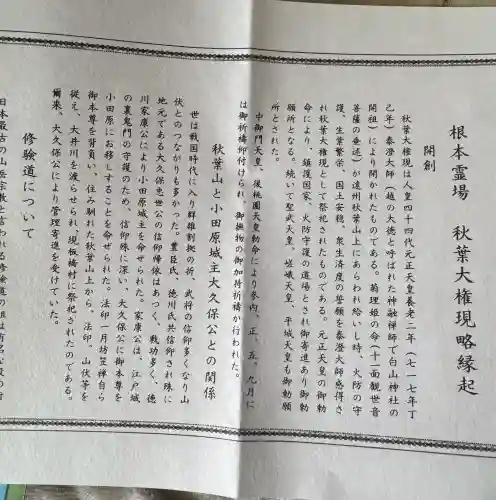 根本霊場　秋葉大権現略縁起
開創
秋葉大権現は人皇四十四代元正天皇養老二年（七一七年丁
巳年）泰澄大師（越の大徳と呼ばれた神融禅師で白山神社の
開祖）により開かれたものである。菊理姫の命（十一面観世音
菩薩の垂迹）が遠州秋葉山上にあらわれ給いし時、火防の守
護、生業繁栄、国土安穏、衆生済度の誓願を泰澄大師感得さ
れ秋葉大権現として祭祀されたものである。元正天皇の御勅
命により、鎮護国家、火防守護の道場とされ御寄進あり御勅
願所となる、続いて聖武天皇、嵯峨天皇、平城天皇も御勅願
所とされた。
中御門天皇、後桃園天皇勅命により参内、正、五、九月に
は御祈祷仰付けられ、御撫物の御加持祈祷が行われた。
秋葉山と小田原城主大久保公との関係
世は戦国時代に入り群雄割拠の折、武将の信仰多くなり山
伏とのつながりも多かった。豊臣氏、徳川氏共信仰され殊に
地元である大久保忠世公の信仰帰依はあつく、戦功多く、徳
川家康公により小田原城主を命ぜられた。家康公は、江戸城
の裏鬼門の守護のため、信仰殊に深い、大久保公に御本尊を
小田原にお移しすることを命ぜられた。法印一月坊笠禅自ら
御本尊を背負い、住み馴れた秋葉山上から、法印、山伏等を
従え、大井川を渡らせられ、現板橋村に祭祀されたのである。
爾来、大久保公により管理寄進を受けていた。
修験道について
日本最古の山岳宗教と言われる修験道の祖は有名な役の